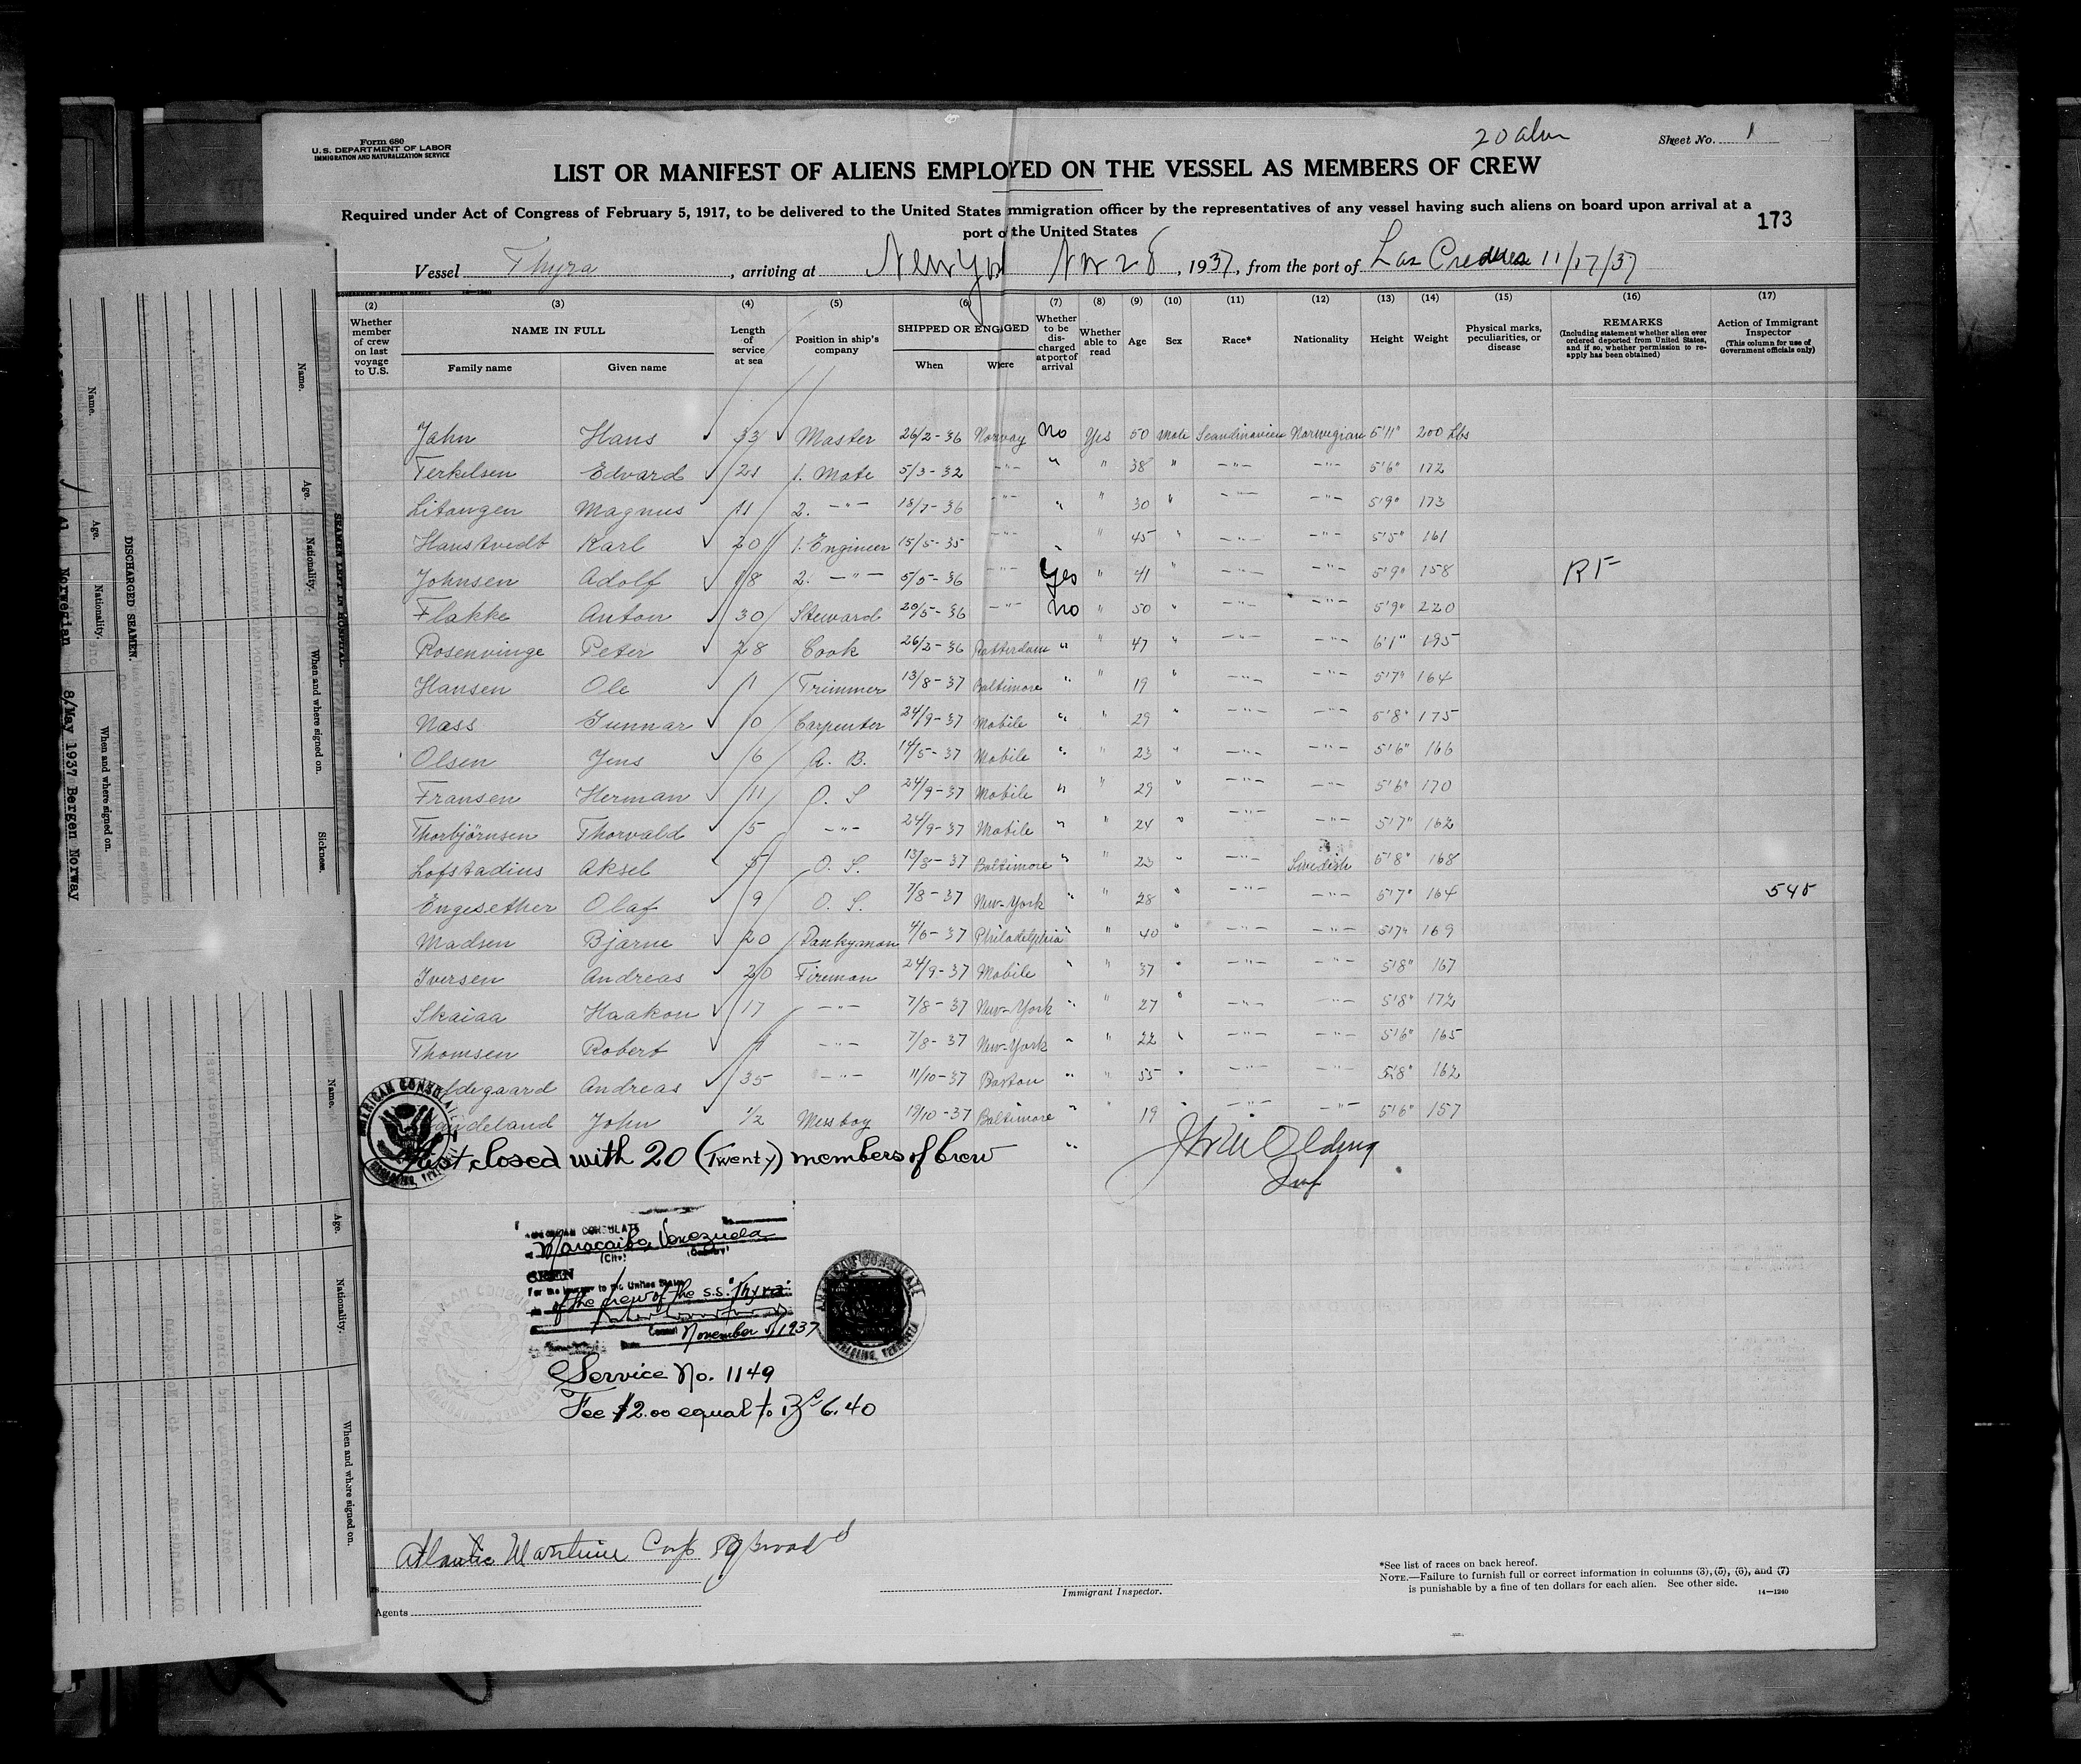 Form 680
U.S. DEPARTMENT OF LABOR
IMMIGRATION AND NATURALIZATION SERVICE
20 alm
Sheet No. 1
LIST OR MANIFEST OF ALIENS EMPLOYED ON THE VESSEL AS MEMBERS OF CREW
Required under Act of Congress of February 5, 1917, to be delivered to the United States mmigration officer by the representatives of any vessel having such aliens on board upon arrival at a
port o the United States
173
Vessel Thyra, arriving at New York Nov 28, 1937, from the port of Las 11/17/37
(2) (3) (4) (5) (6) (7) (8) (9) (10) (11) (12) (13) (14) (15) (16) (17)
Whether member of crew on last voyage to U.S. NAME IN FULL Length of service at sea Position in ship's company SHIPPED OR ENGAGED Whether to be discharged at port of arrival Whether able to read Age Sex Race* Nationality Height Weight Physical marks, peculiarities, or disease REMARKS (Including statement whether alien ever ordered deported from United States, and if so, whether permission to reapply has been obtained) Action of Immigrant Inspector (This column for use of Government officials only)
Family name Given name When Where
Jahn Hans 33 Master 26/2-36 Norway No Yes 50 Male Scandinavien Norwegian 5'11" 200 Lbs
Terkelsen Edvard 21 1. Mate 5/3-32 -"- " " 38 " -"- -"- 5'6" 172
Litangen Magnus 11 2. -"- 18/7-36 -"- " " 30 " -"- -"- 5'9" 173
Hanstvedt Karl 20 1. Engineer 15/5-35 -"- " " 45 " -"- -"- 5'5" 161
Johnsen Adolf 18 2. -"- 5/5-36 -"- Yes " 41 " -"- -"- 5'9" 158 RF
Flakke Anton 30 Steward 20/5-36 -"- No " 50 " -"- -"- 5'9" 220
Rosenvinge Peter 28 Cook 26/2-36 Rotterdam " " 47 " -"- -"- 6'1" 195
Hansen Ole 1 Trimmer 13/8-37 Baltimore " " 19 " -"- -"- 5'7" 164
Nass Gunnar 10 Carpenter 24/9-37 Mobile " " 29 -"- -"- 5'8" 175
Olsen Jens 6 A. B. 14/5-37 Mobile " " 23 " -"- -"- 5'6" 166
Fransen Herman 11 O. S 24/9-37 Mobile " " 29 " -"- -"- 5'6" 170
Thorbjörnsen Thorvald 5 -"- 24/9-37 Mobile " " 24 " -"- -"- 5'7" 162
Lofstadius Aksel 5 O. S. 13/8-37 Baltimore " " 23 " -"- Swedish 5'8" 168
Engesether Olaf 9 O. S. 7/8-37 New-York " " 28 " -"- -"- 5'7" 164 545
Madsen Bjarne 20 Dankyman 4/6-37 Philadelphia " " 40 " -"- -"- 5'7" 169
Iversen Andreas 20 Fireman 24/9-37 Mobile " " 37 " -"- -"- 5'8" 167
Skaiaa Haakon 17 -"- 7/8-37 New-York " " 27 " -"- -"- 5'8" 172
Thomsen Robert -"- 7/8-37 New-York " " 22 " -"- -"- 5'6" 165
ldegaard Andreas 35 -"- 11/10-37 Boston " " 55 " -"- -"- 5'8" 162
andeland John 1/2 Messboy 19/10-37 Baltimore " " 19 " -"- -"- 5'6" 157
List closed with 20 (Twenty) members of Crew "
AMERICAN CONSULATE
AMERICAN CONSULATE
Maracaibo, Venezuela
(City) (Country)
SEEN
For the journey to the United States
of the crew of the s.s. "Thyra"
Consul
November 1937
AMERICAN CONSULATE
MARACAIBO, VENEZUELA
Service No. 1149
Fee $2.00 equal to Bs 6.40
Atlantic Maritime Corp 59 Broad St
Agents
Immigrant Inspector.
*See list of races on back hereof.
NOTE.—Failure to furnish full or correct information in columns (3), (5), (6), and (7)
is punishable by a fine of ten dollars for each alien. See other side.
14—1240
SEAMEN LEFT IN HOSPITAL.
Name. Age. Nationality. When and where signed on. Sickness.
DISCHARGED SEAMEN.
Name. Age. Nationality. When and where signed on.
41 Norwegian 8/May 1937 Bergen Norway
Name. Age. Nationality. When and where signed on.